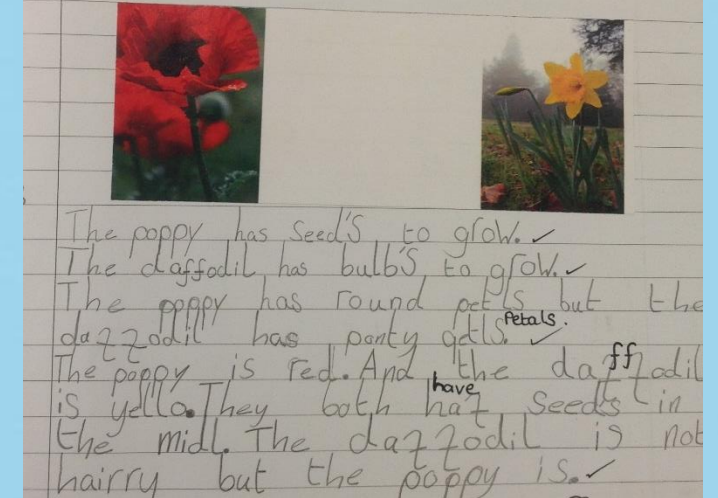 The poppy has seed'S to grow. ✓
The daffodil has bulb'S to grow. ✓
The poppy has round petls but the
Petals.
dazzodil has ponty petls. ✓
The poppy is red. And the dazzodil
ff
have
is yello. They both haz seeds in
the midl. The dazzodil is not
hairry but the poppy is. ✓